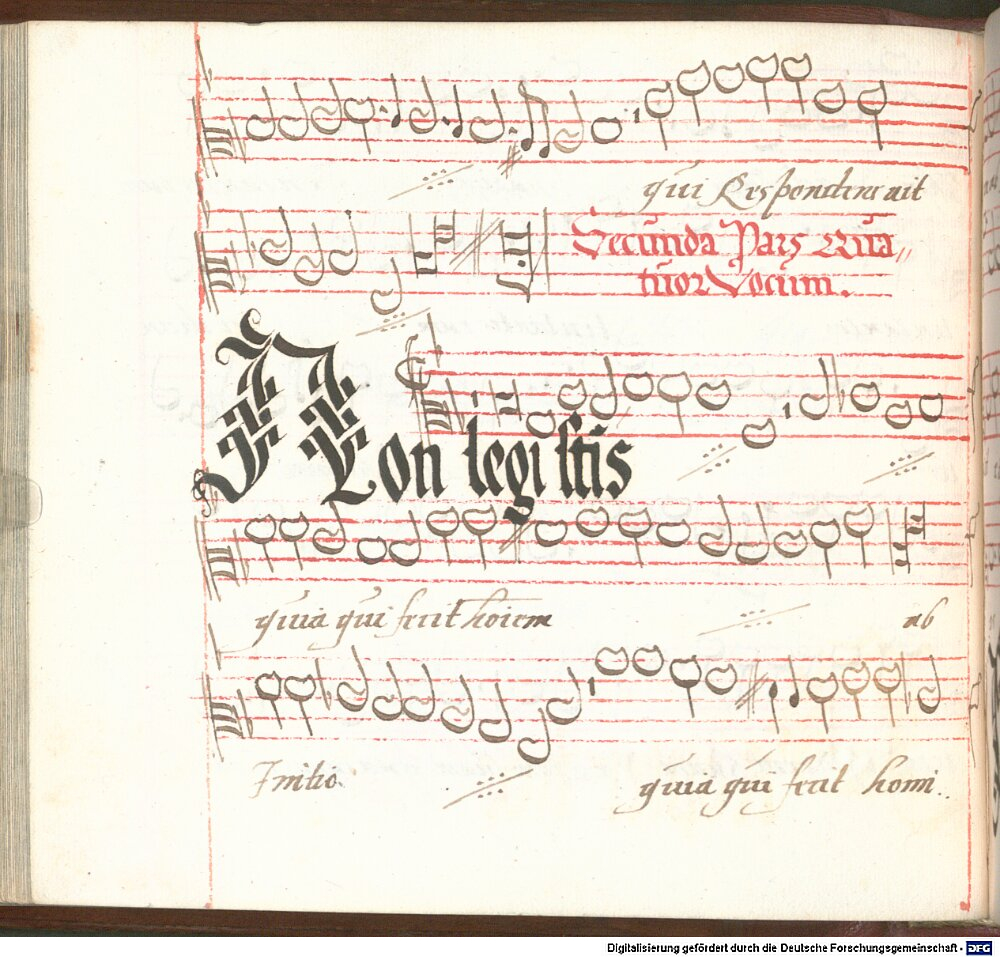 qui Respondens ait
Secunda Pars Qua„
tuor Vocum.
Non legistis
quia qui fecit hoiem ab
Initio quia qui fecit homi..
Digitalisierung gefördert durch die Deutsche Forschungsgemeinschaft - DFG